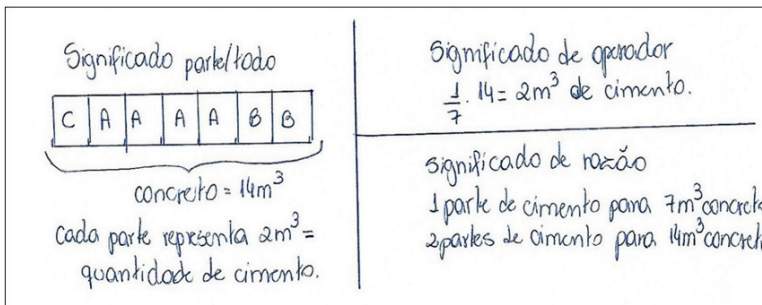 Significado parte/todo
C A A A A B B
concreto = 14m³
cada parte representa 2m³ =
quantidade de cimento.
Significado de operador
1/7 . 14 = 2m³ de cimento.
Significado de razão
1 parte de cimento para 7m³ concreto
2 partes de cimento para 14m³ concret